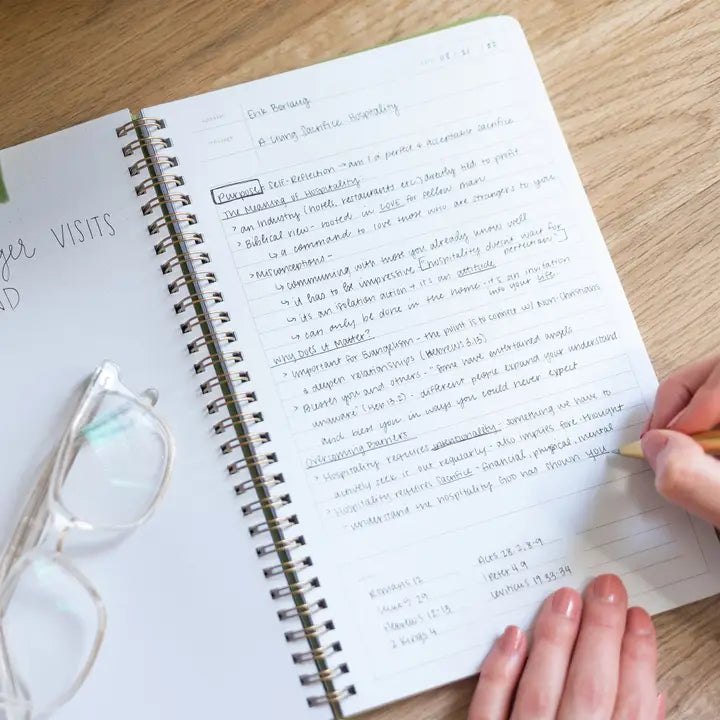 ger VISITS
ND
08 · 21
Erik Borlaug
A Living Sacrifice: Hospitality
Purpose: Self-Reflection → am I a perfect & acceptable sacrifice
The Meaning of Hospitality
> an Industry (hotels, restaurants etc.) directly tied to profit
> Biblical view - rooted in LOVE for fellow man
↳ a command to love those who are strangers to you
> Misconceptions -
↳ communing with those you already know well
↳ it has to be impressive ["hospitality doesn't wait for perfection"]
↳ it's an isolation action → it's an attitude
↳ can only be done in the home - it's an invitation into your life
Why Does it Matter?
> Important for Evangelism - the point is to connect w/ Non-Christians
& deepen relationships (Hebrews 3:13)
> Blesses you and others - "some have entertained angels
unaware" (Heb 13:2) - different people expand your understand
and bless you in ways you could never expect
Overcoming Barriers
> Hospitality requires intentionality - something we have to
actively seek it out regularly - also implies fore-thought
> Hospitality requires Sacrifice - financial, physical, mental
- understand the hospitality God has shown you
Romans 12
Hebrews 12-13
2 Kings 4
Acts 28:2, 8-9
1 Peter 4:9
Leviticus 19:33-34